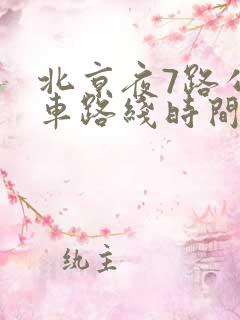 北京夜7路公
車路綫時間
纨主